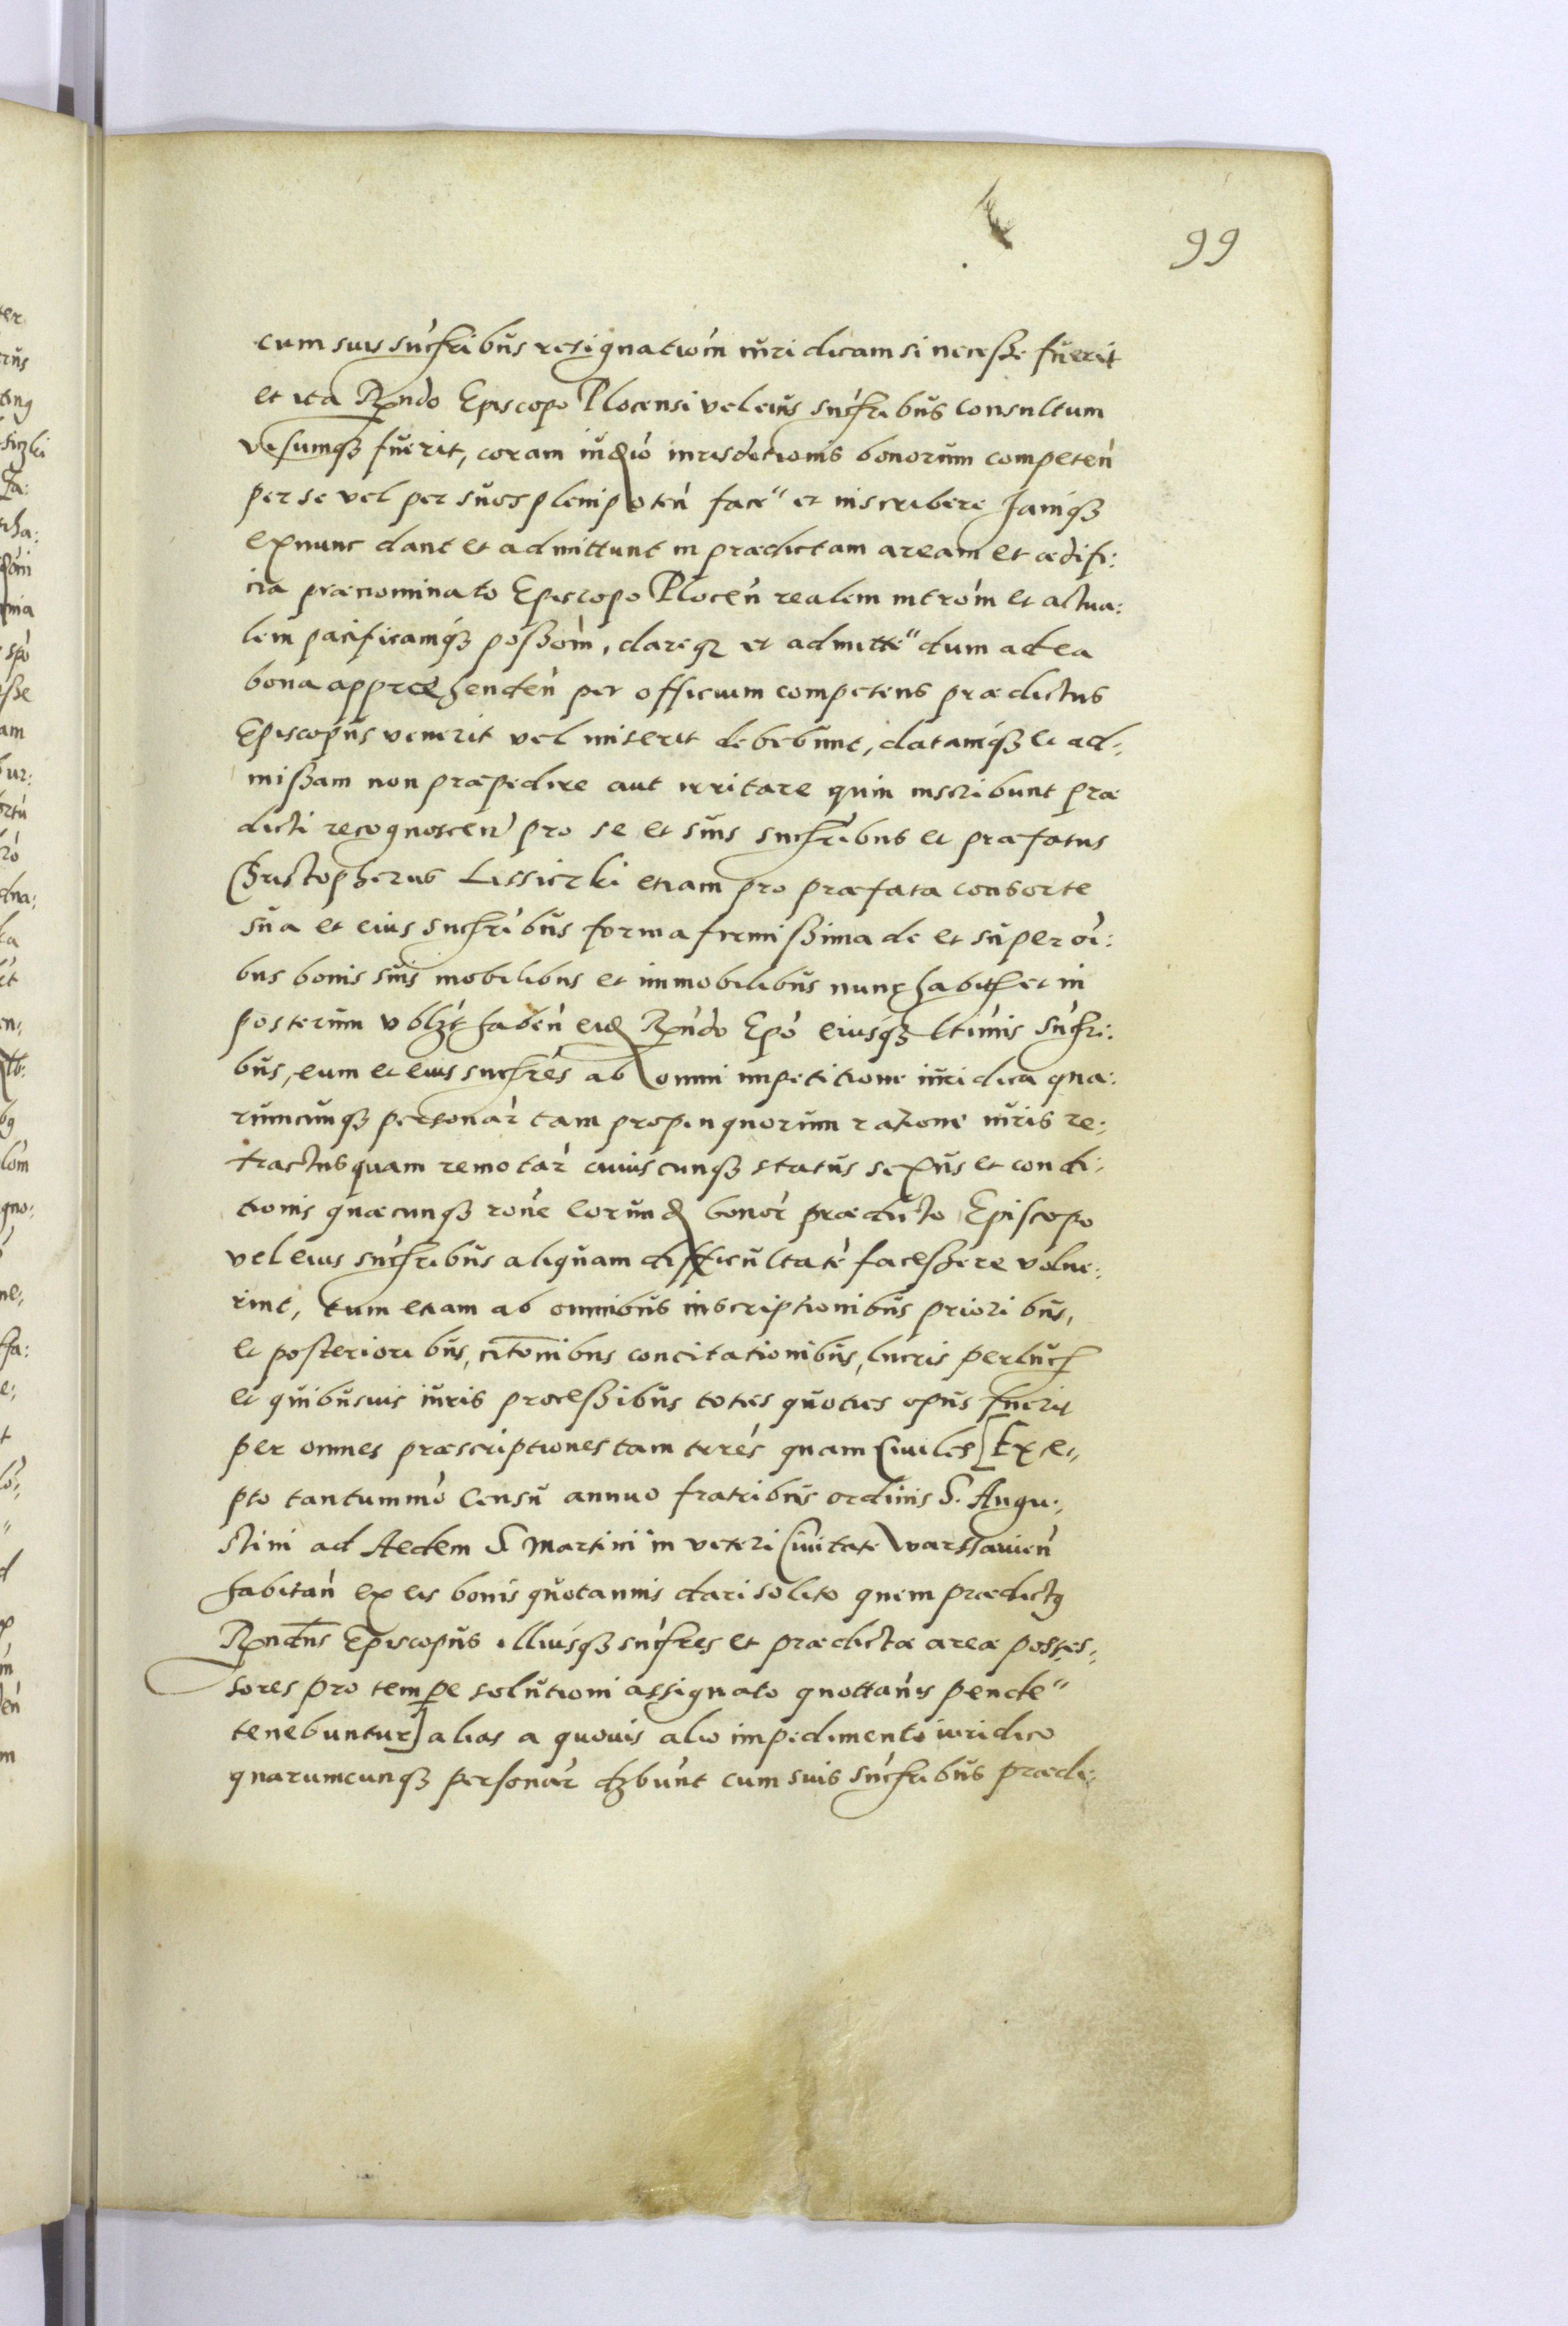 99
cum suis sućhribus resignatioṁ iuridicam si necesße fuerit
et ita Rṅdo Episcopo Plocensi vel eius sućhribus consultum
visumqȝ fuerit, coram iudió iurisdictionis bonorum competeṅ
per se vel per suos plenipoteṅ face" et inscribere Jamqȝ
exnunc dant et admittunt in prædictam aream et ædifi:
cia prænominato Episcopo Ploceṅ realem intróm et actua:
lem pacificamqȝ poßóm, dareqȝ et admitte" dum ad ea
bona appræhendeṅ per officium competens prædictus
Episcopus venerit vel miserit debebunt, datamqȝ et ad:
mißam non præpedire aut irritare quin inscribunt præ
dicti recognosceṅ pro se et suis sućhribus et præfatus
Christopherus Lissiczki etiam pro præfata consorte
sua et eius sućhribus forma firmißima de et super oi:
bus bonis suis mobilibus et immobilibus nunc habitis et in
posterum vblȝt habeṅ eid Rṅdo Epó eiusqȝ ltimis sućhri:
bus, eum et eius sućhres ab omni impetitione iuridica qua:
rumcunqȝ personár tam propinquorum ratione iuris re:
tractus quam remotár cuiuscunqȝ status sexus et condi:
tionis quæcunqȝ róne eorund bonór prædicto Episcopo
vel eius sućhribus aliquam difficultaté facesßere volue:
rint, tum etiam ab omnibus inscriptionibus prioribus,
et posterioribus, citonibus concitationibus, lucris perlucris
et quibusuis iuris proceßibus toties quoties opus fuerit
per omnes præscriptiones tam terrés quam Ciuiles [Exce:
pto tantummó Censu annuo fratribus ordinis S. Augu:
stini ad Aedem S Martini in veteri Ciuitate Warssauieṅ
habitaṅ ex eis bonis quotannis dari solito quem prædictꝯ
Rṅdus Episcopus illiusqȝ sućhres et prædictæ areæ posses:
sores pro tempe solutioni assignato quottaṅis pende"
tenebuntur] alias a quouis alio impedimento iuridico
quarumcunqȝ personár dȝbunt cum suis sućhribus prædi: